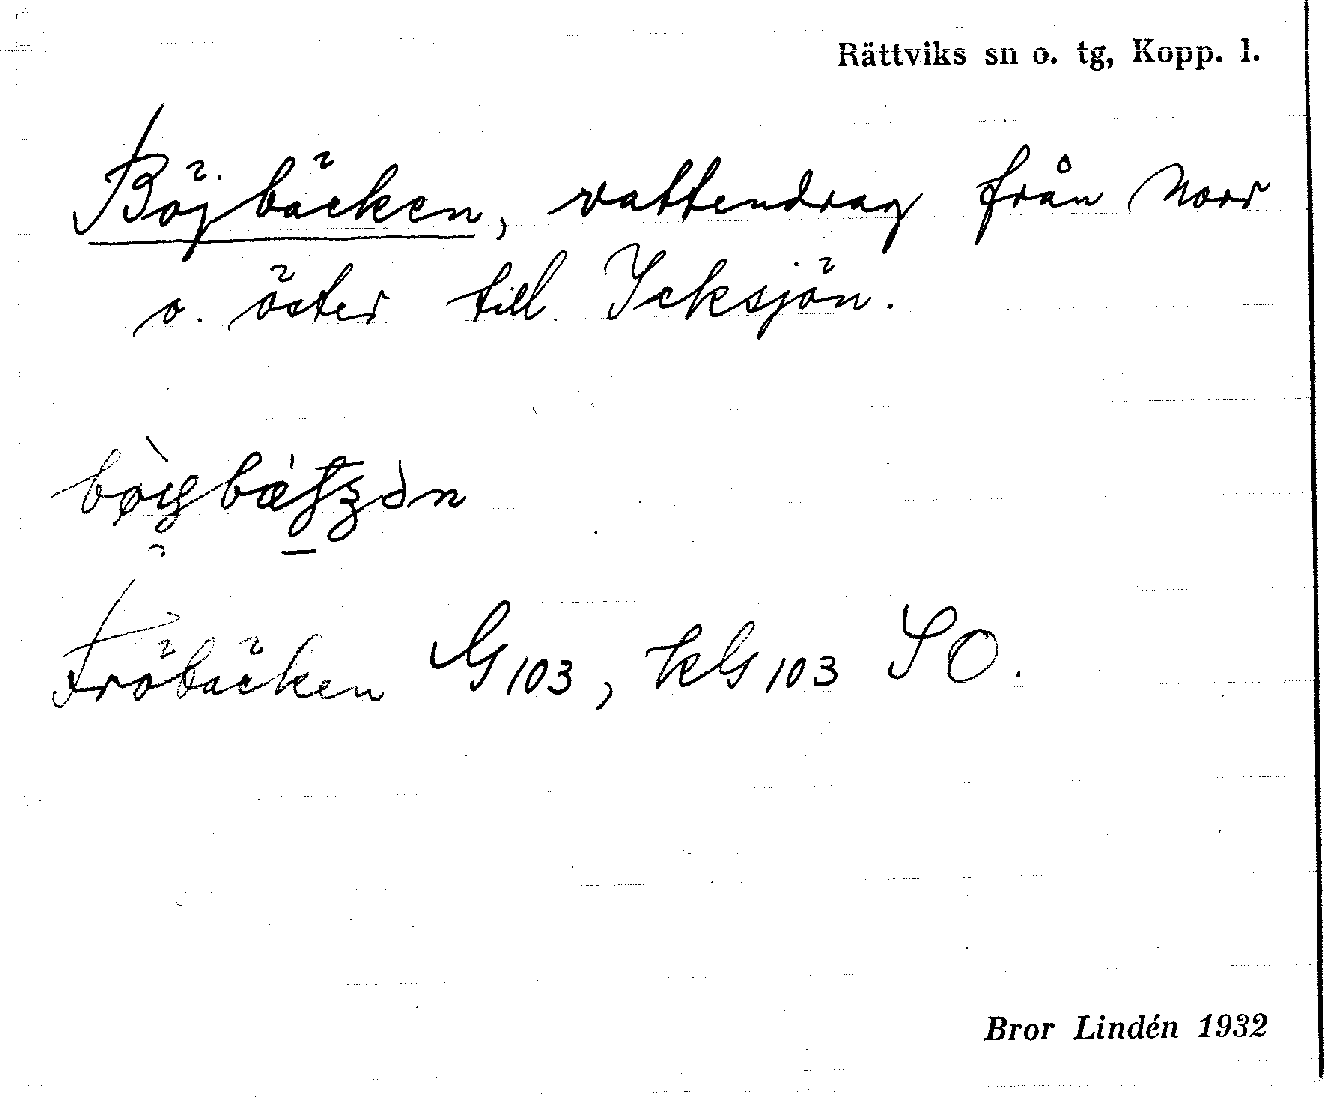 Rättviks sn o. tg, Kopp. l.
Böjbäcken, vattendrag från norr
o. öster till Icksjön.
Fröbäcken G103, kG103 SO.
Bror Lindén 1932